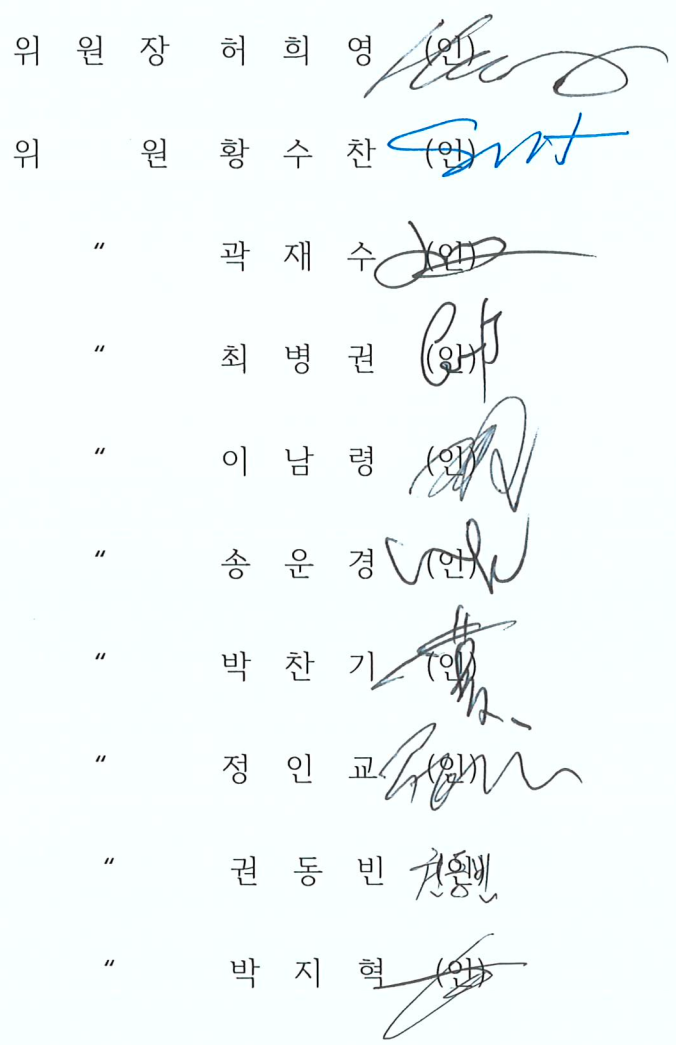 위 원 장 허 희 영 (인)
위 원 황 수 찬 (인)
" 곽 재 수 (인)
" 최 병 권 (인)
" 이 남 령 (인)
" 송 운 경 (인)
" 박 찬 기 (인)
" 정 인 교 (인)
" 권 동 빈 (인)
" 박 지 혁 (인)